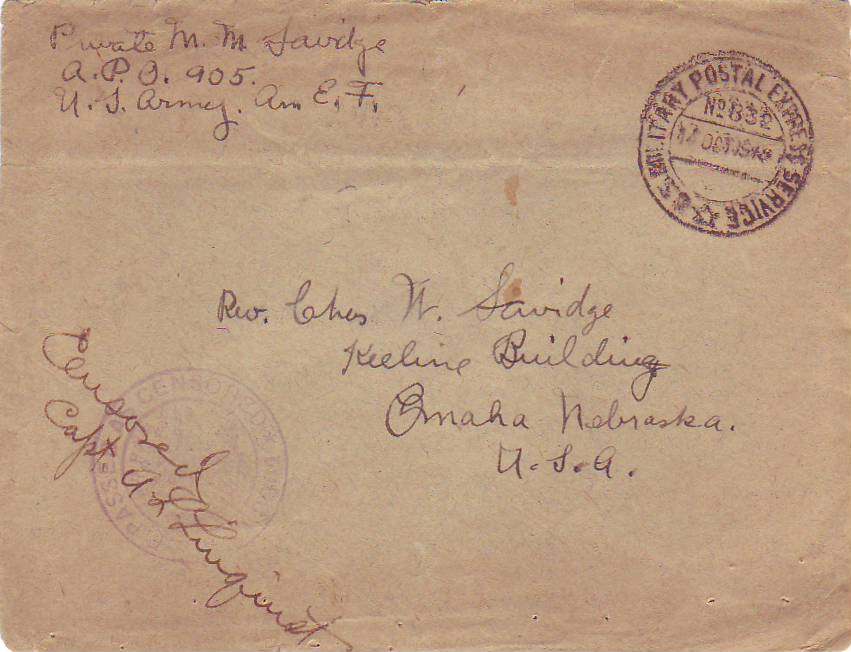 Private M. M. Savidge
A.P.O. 905.
U.S. Army. Am E. F.
U.S. MILITARY POSTAL EXPRESS SERVICE
No 832
OCT 1918
Rev. Chas W. Savidge
Keeline Building
Omaha Nebraska.
U.S.A.
Censored
Capt A L Linquist
PASSED AS CENSORED